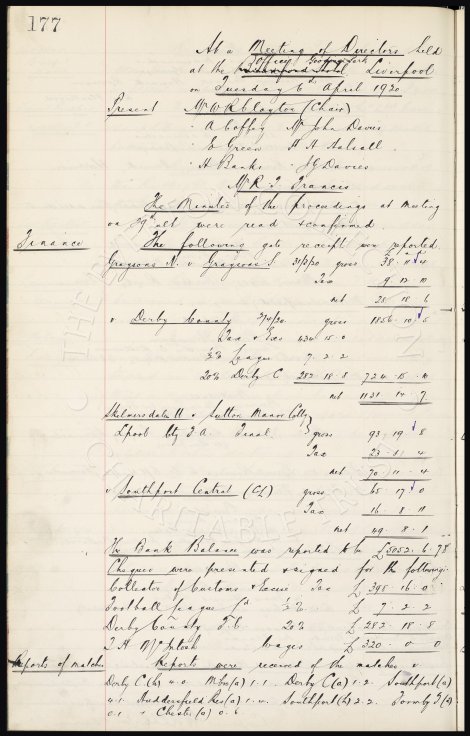 177
At a Meeting of Directors held
at the Offices Goodison Park Liverpool
on Tuesday 6th April 1920
Present Mr W R Clayton (Chair)
" A Coffey Mr John Davies
" E Green " H A Halsall
" H Banks " J G Davies
Mr R J Francis
The Minutes of the proceedings at meeting
on 29th ult were read & confirmed.
Finance The following gate receipts were reported.
Graysons N. v Graysons S. 31/3/20 gross 38. 11. 4
Tax 9. 12. 10
net 28. 18. 6
v Derby County 2/4/20 gross 1856. 10. 5
Tax & Exs 434. 15. 0
½% League 7. 2. 2
20% Derby C 282. 18. 8 724. 15. 10
net 1131. 14. 7
Skelmersdale U v Sutton Manor Colly
Lpool Cty F A Final gross 93. 19. 8
Tax 23. 8. 4
net 70. 11. 4
v Southport Central (CL) gross 65. 17. 0
Tax 16. 8. 11
net 49. 8. 1
The Bank Balance was reported to be £5052. 6. 7
Cheques were presented & signed for the following:
Collector of Customs & Excise Tax £ 398. 16. 0
Football League Ld ½% £ 7. 2. 2
Derby County F.C. 20% £ 282. 18. 8
T H McIntosh Wages £ 320. 0. 0
Reports of matches Reports were received of the matches v
Derby C (h) 4.0 (a) 1.1. Derby C (a) 1.2. Southport (a)
4.1. Huddersfield Res (a) Southport (h) 2.2. Formby (a)
0.1 v Chester (a) 0.6